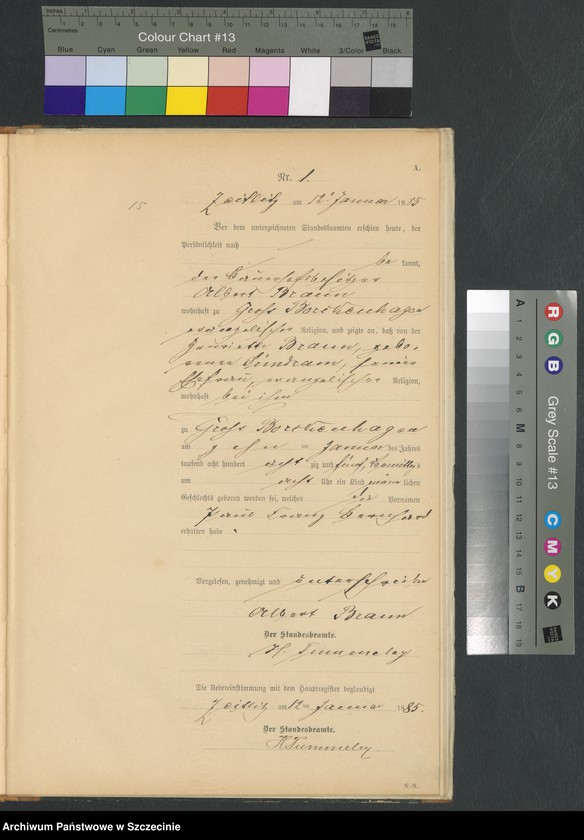 Inches
Centimetres
Colour Chart #13
Blue Cyan Green Yellow Red Magenta White 3/Color Black
A.
Nr. 1.
15
Zeitlitz am 12. Januar 1885
Vor dem unterzeichneten Standesbeamten erschien heute, der
Persönlichkeit nach
be kannt,
der Bauerhofsbesitzer
Albert Braun
wohnhaft zu Groß Borckenhagen
evangelischer Religion, und zeigte an, daß von der
Henriette Braun, gebo-
renen Sündram, seiner
Ehefrau, evangelischer Religion,
wohnhaft bei ihm
zu Groß Borckenhagen
am zehn ten Januar des Jahres
tausend acht hundert acht zig und fünf, Vormittags
um acht Uhr ein Kind männ lichen
Geschlechts geboren worden sei, welches die Vornamen
Paul Franz Bernhard
erhalten habe
Vorgelesen, genehmigt und unterschrieben
Albert Braun
Der Standesbeamte.
H. Tummeley
Die Uebereinstimmung mit dem Hauptregister beglaubigt
Zeitlitz am 12ten Januar 1885.
Der Standesbeamte.
H Tummeley
Grey Scale #13
R G B C M Y K
A 1 2 3 4 5 6 M 8 9 10 11 12 13 14 15 B 17 18 19
Archiwum Państwowe w Szczecinie